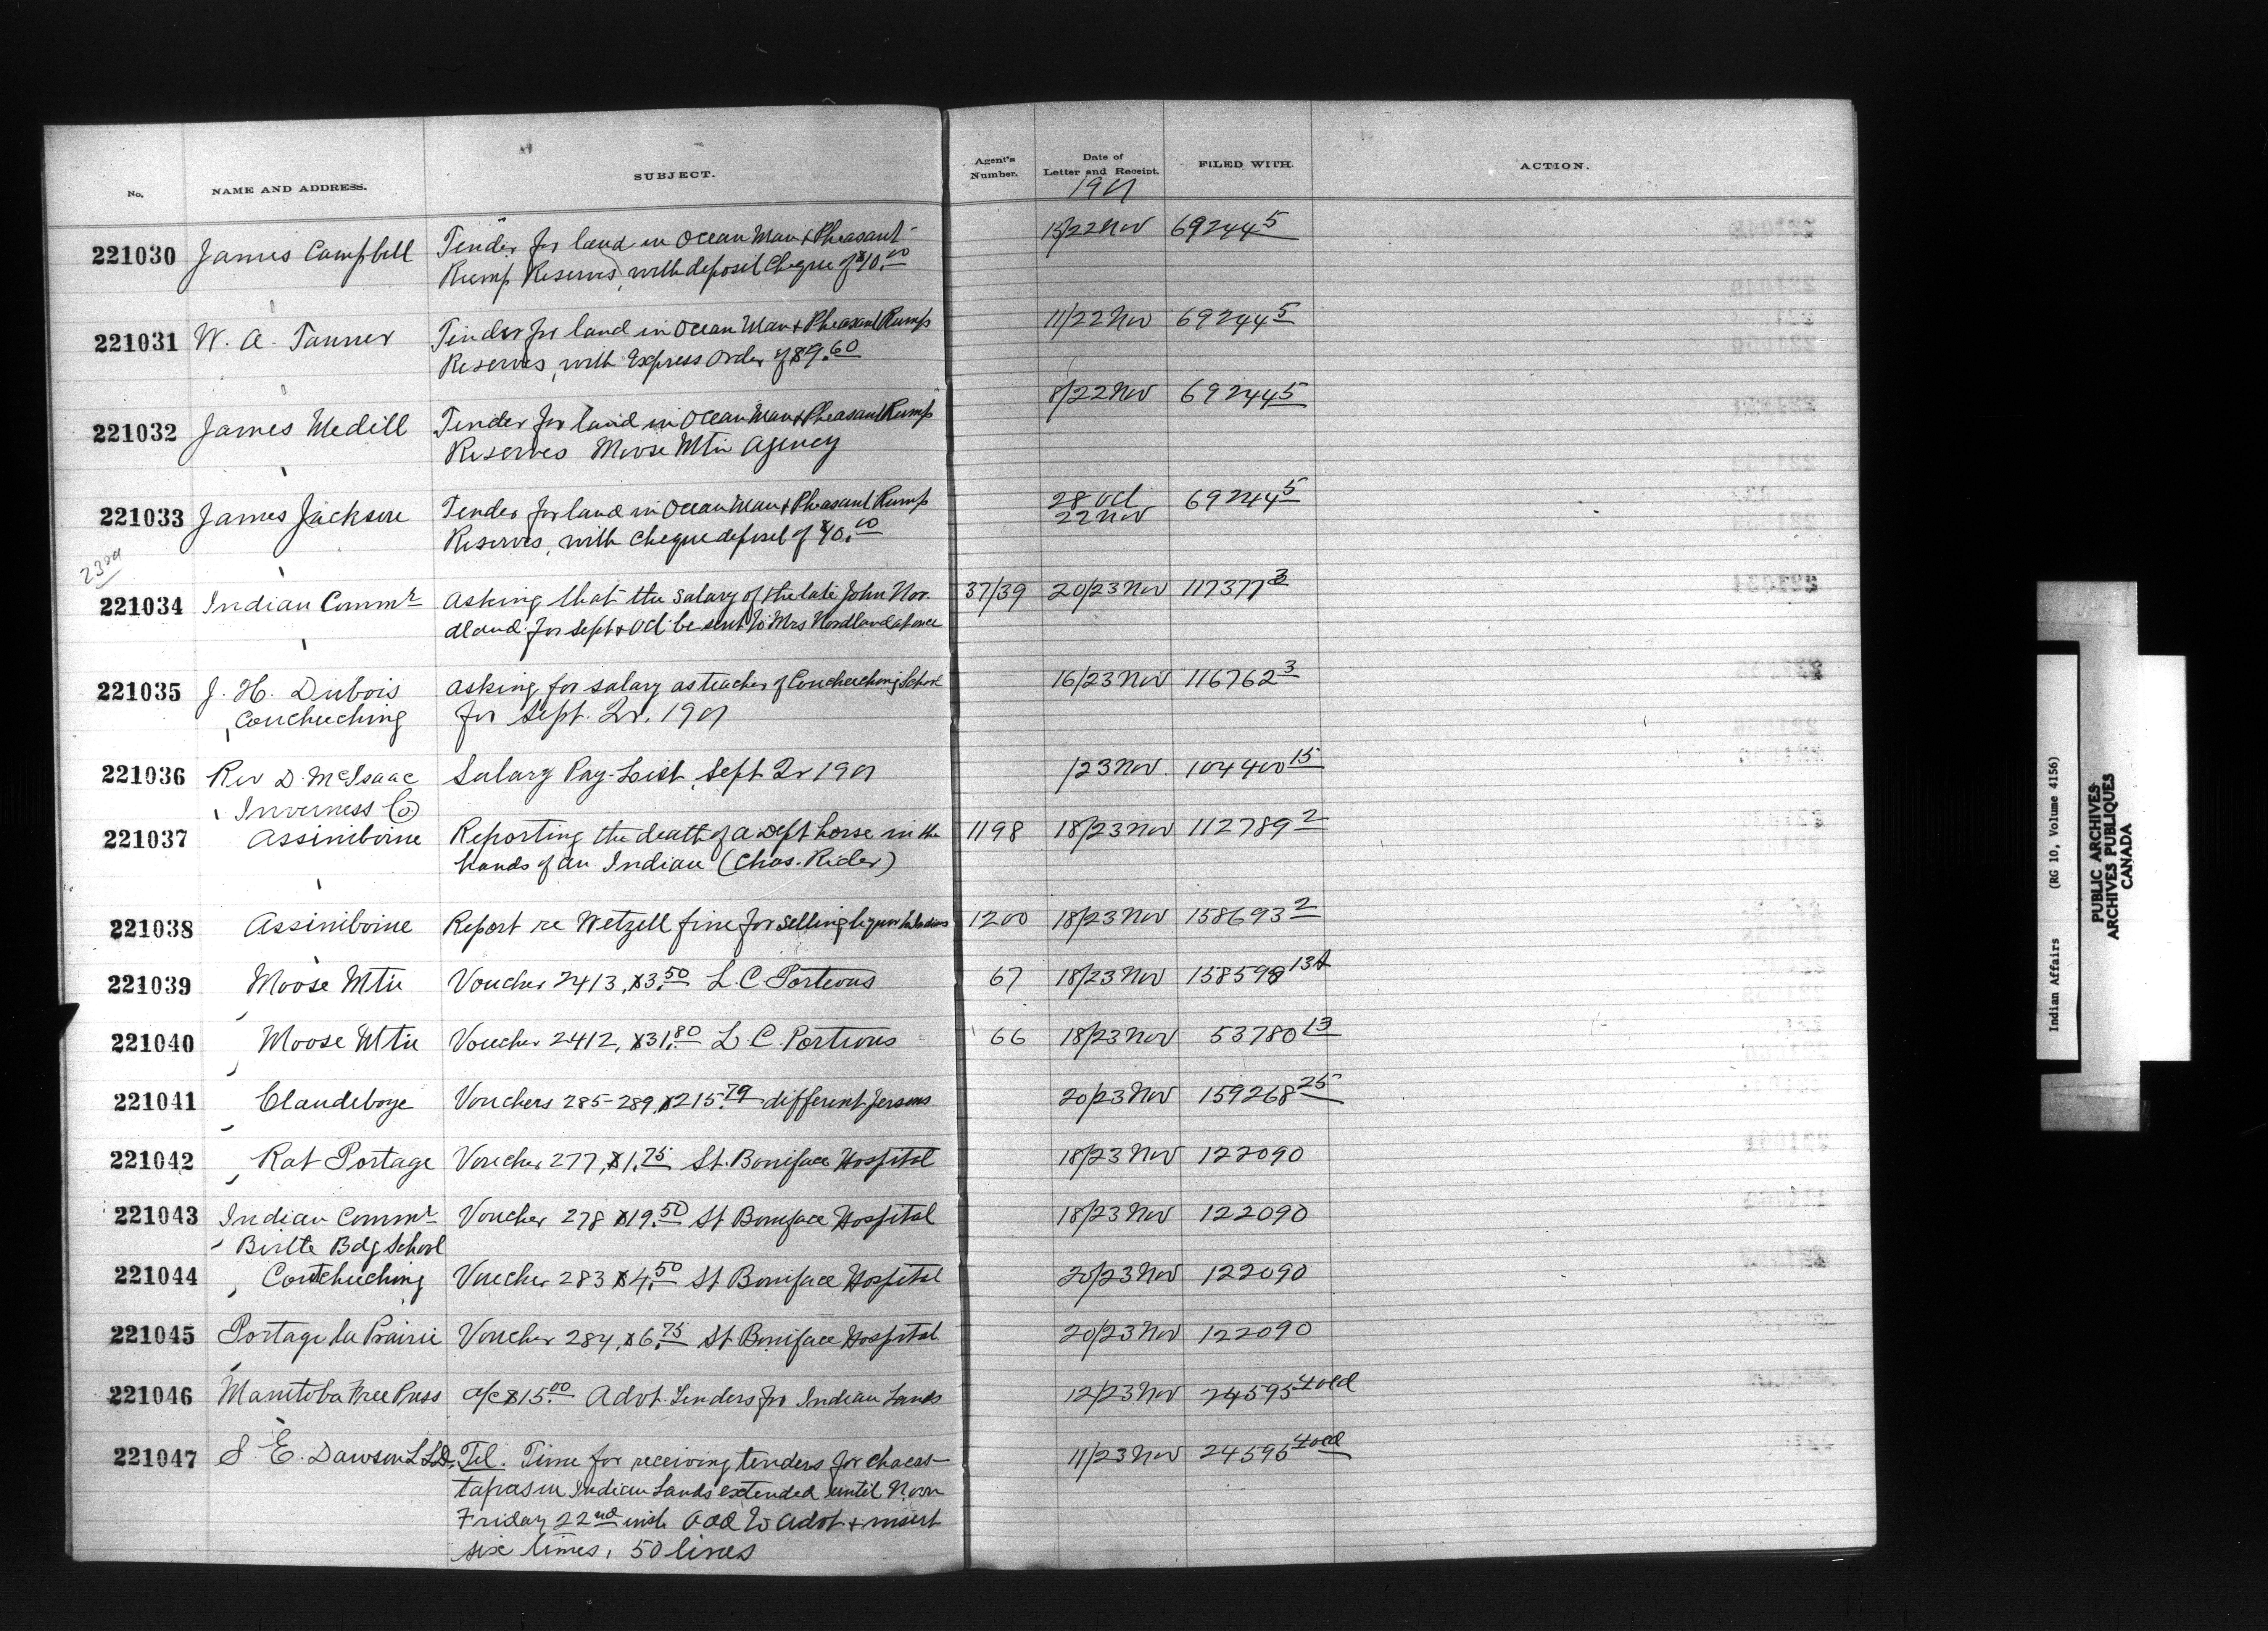 No. NAME AND ADDRESS. SUBJECT. Agent's Number. Date of Letter and Receipt. FILED WITH. ACTION.
1901
221030 James Campbell Tender for land in Ocean Man & Pheasant 15/22 Nov 69244 5
Rump Reserves, with deposit cheque of $10.00
221031 W. A. Tanner Tender for land in Ocean Man & Pheasant Rump 11/22 Nov 69244 5
Reserves, with Express Order of $9.60
221032 James Medill Tender for land in Ocean Man & Pheasant Rump 8/22 Nov 69244 5
Reserves Moose Mtn Agency
221033 James Jackson Tender for land in Ocean Man & Pheasant Rump 28 Oct 69244 5
Reserves, with cheque deposit of $40.00 22 Nov
23rd
221034 Indian Commr Asking that the salary of the late John Nor- 37/39 20/23 Nov 117377 3
dland for Sept & Oct be sent to Mrs Nordland at once
221035 J. H. Dubois Asking for salary as teacher of Coucheeching School 16/23 Nov 116762 3
Coucheeching for Sept. Qr. 1901
221036 Rev D. McIsaac Salary Pay-List, Sept Qr 1901 /23 Nov 104400 15
Inverness Co
221037 Assiniboine Reporting the death of a Dept horse in the 1198 18/23 Nov 112789 2
hands of an Indian (Chas. Rider)
221038 Assiniboine Report re Wetzell fine for selling liquor to Indians 1200 18/23 Nov 158693 2
221039 Moose Mtn Voucher 2413, $3.50 L. C. Porteous 67 18/23 Nov 158598 13A
221040 Moose Mtn Voucher 2412, $31.80 L. C. Porteous 66 18/23 Nov 53780 13
221041 Clandeboye Vouchers 285-289, $215.79 different persons 20/23 Nov 159268 25
221042 Rat Portage Voucher 277, $1.75 St. Boniface Hospital 18/23 Nov 122090
221043 Indian Commr Voucher 278 $19.50 St Boniface Hospital 18/23 Nov 122090
Birtle Bdg School
221044 Coutcheeching Voucher 283 $4.50 St Boniface Hospital 20/23 Nov 122090
221045 Portage la Prairie Voucher 284, $6.75 St Boniface Hospital 20/23 Nov 122090
221046 Manitoba Free Press a/c $15.00 Advt. Tenders for Indian Lands 12/23 Nov 24595 4 old
221047 S. E. Dawson L.L.D. Tel. Time for receiving tenders for chacas- 11/23 Nov 24595 4 old
tapasin Indian Lands extended until Noon
Friday 22nd inst. Add to advt & insert
six times, 50 lines
Indian Affairs (RG 10, Volume 4156)
PUBLIC ARCHIVES
ARCHIVES PUBLIQUES
CANADA